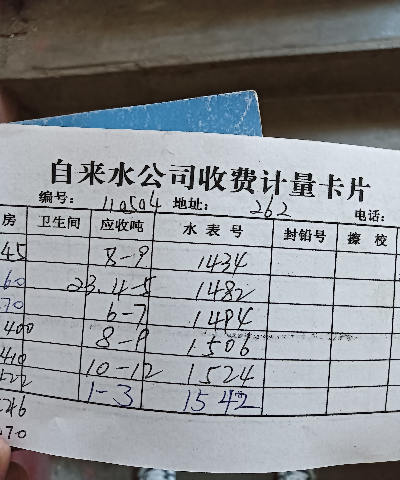 自来水公司收费计量卡片
编号: 110504 地址: 262 电话:
房 卫生间 应收吨 水表号 封铅号 擦校
45 8-9 1434
60 23.4-5 1482
70 6-7 1494
400 8-9 1506
410 10-12 1524
422 1-3 1542
546
070